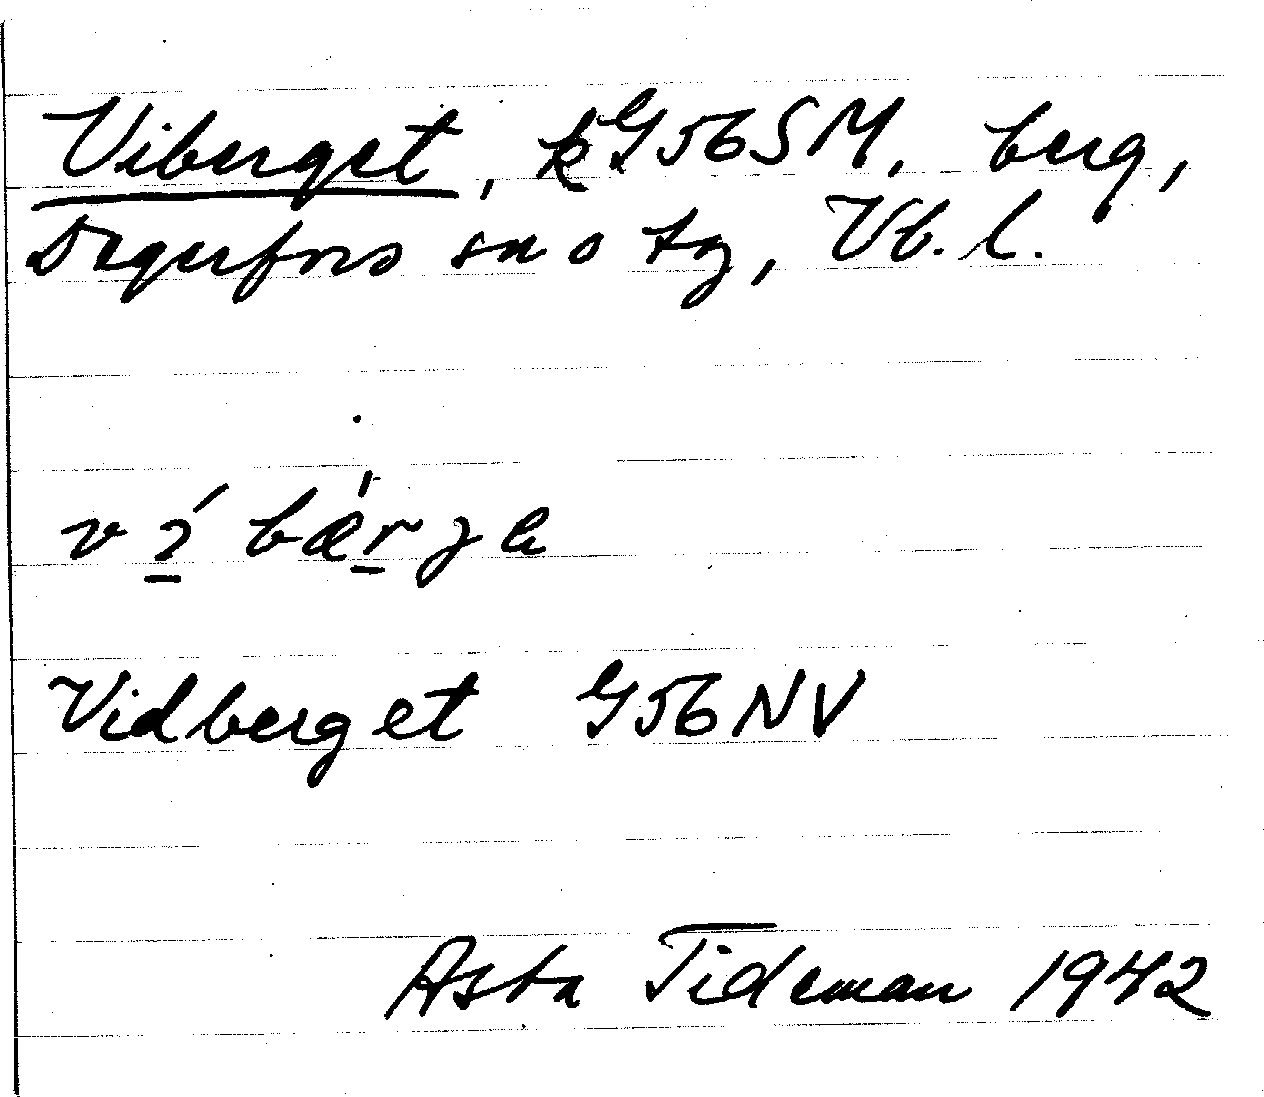 Viberget, kG56SM, berg,
Degerfors sn o tg, Vb. l.
Vidberget G56NV
Asta Tideman 1942